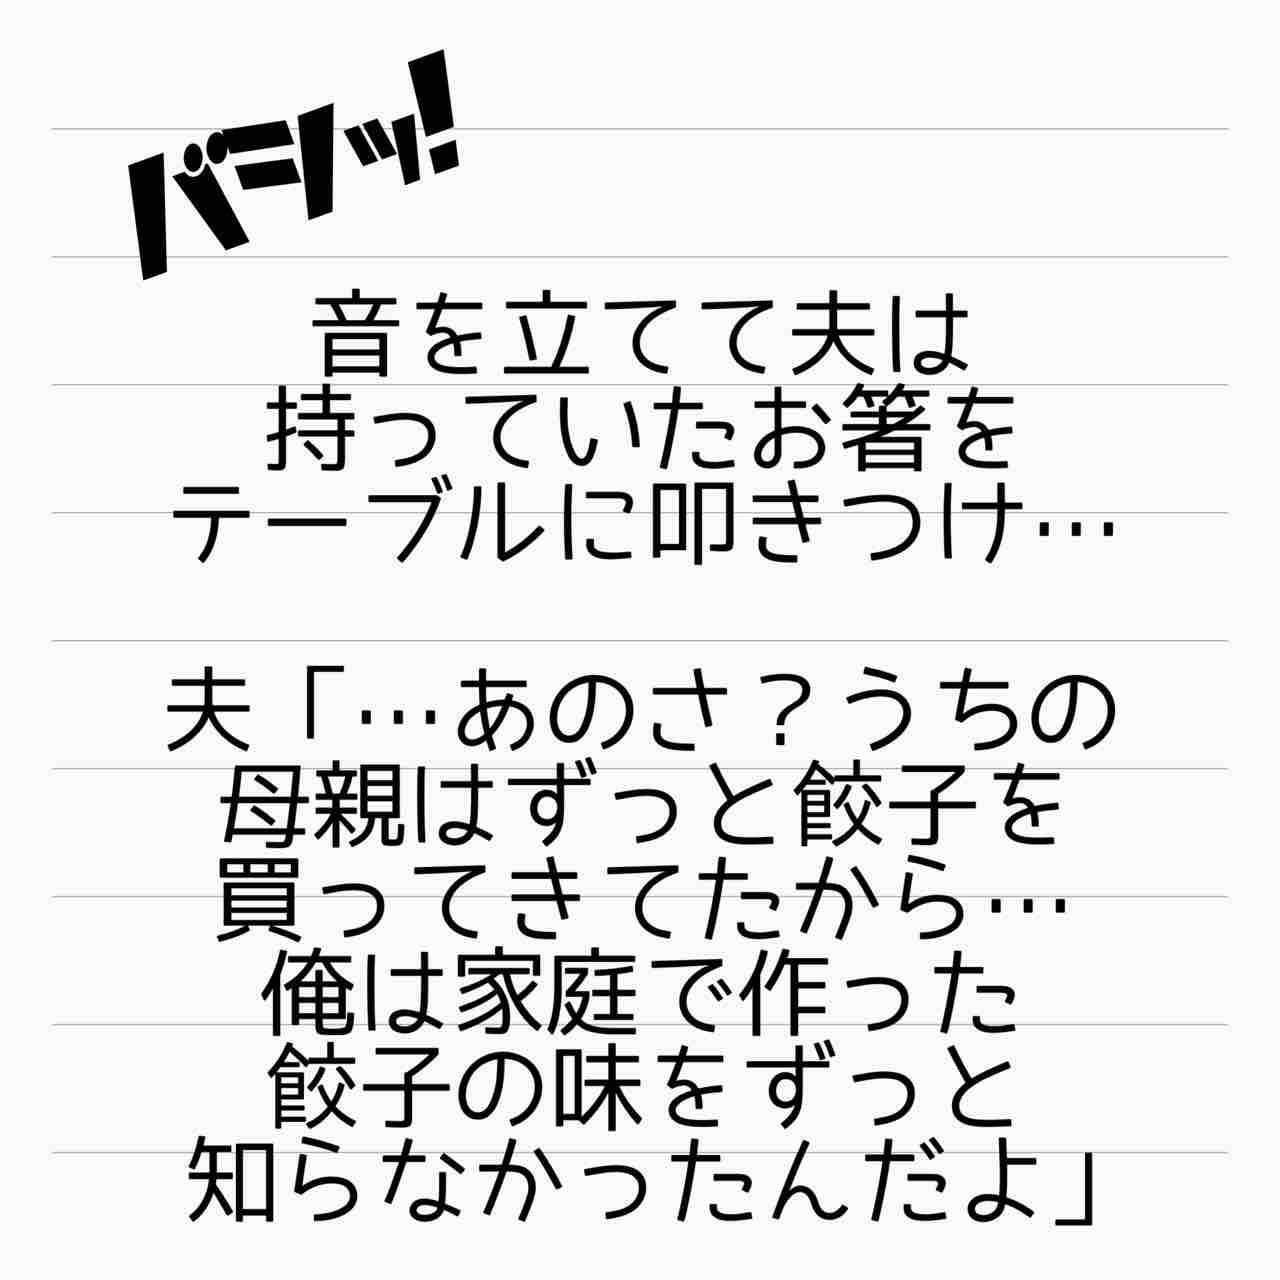 バンッ!
音を立てて夫は
持っていたお箸を
テーブルに叩きつけ…
夫「…あのさ？うちの
母親はずっと餃子を
買ってきてたから…
俺は家庭で作った
餃子の味をずっと
知らなかったんだよ」